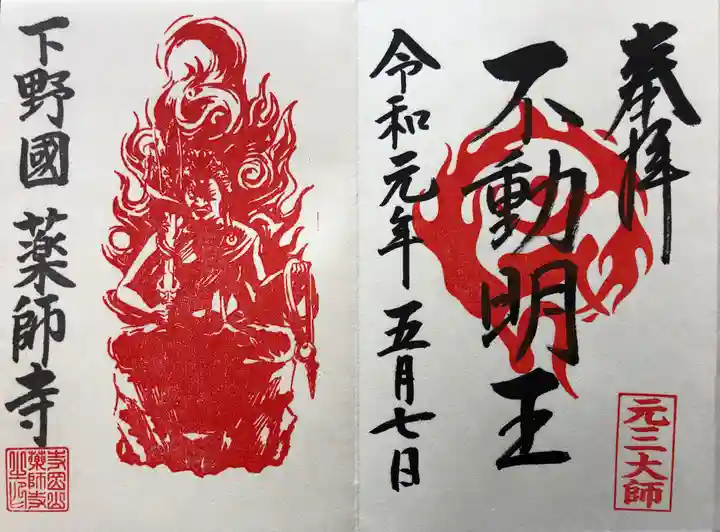 奉拝
不動明王
令和元年 五月七日
元三大師
下野國 薬師寺